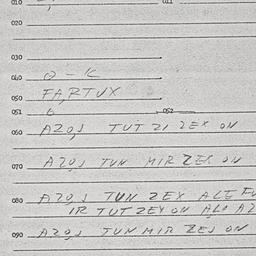 010
011
020
030
040 O - K
050 FA,RTUX
051 6 052
060 AZO,J TUT ZI ZEX ON
070 AZO,J TUN MIR ZEX ON
080 AZO,J TUN ZEX ALE
IR TUT ZEX ON ALO AZ
090 AZO,J TUN MIR ZEJ ON